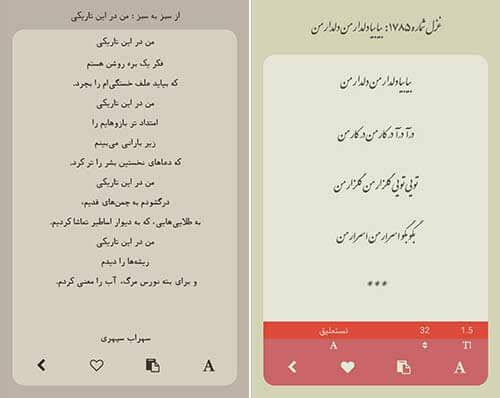 از سبز به سبز : من در این تاریکی
من در این تاریکی
فکر یک بره روشن هستم
که بیاید علف خستگی‌ام را بچرد.
من در این تاریکی
امتداد تر بازوهایم را
زیر بارانی می‌بینم
که دعاهای نخستین بشر را تر کرد.
من در این تاریکی
درگشودم به چمن‌های قدیم،
به طلایی‌هایی، که به دیوار اساطیر تماشا کردیم.
من در این تاریکی
ریشه‌ها را دیدم
و برای بته نورس مرگ، آب را معنی کردم.
سهراب سپهری
A
غزل شماره ۱۷۸۵: بیا بیا دلدار من دلدار من
بیا بیا دلدار من دلدار من
درآ درآ در کار من در کار من
تویی تویی گلزار من گلزار من
بگو بگو اسرار من اسرار من
***
نستعلیق 32 1.5
A TI
A